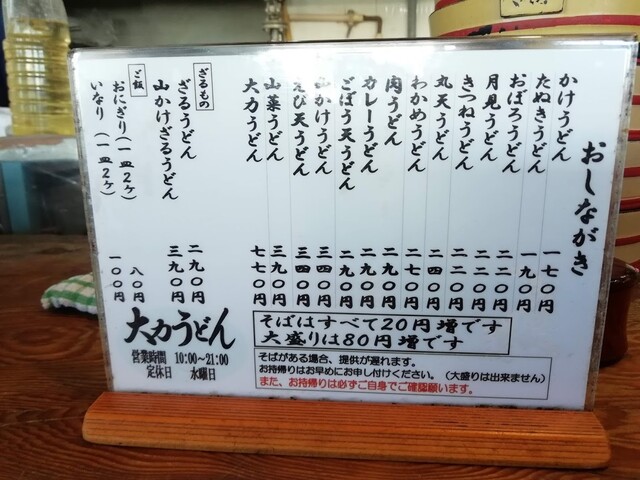 おしながき
かけうどん 一七〇円
たぬきうどん 一九〇円
おぼろうどん 二二〇円
月見うどん 二二〇円
きつねうどん 二二〇円
丸天うどん 二四〇円
わかめうどん 二七〇円
肉うどん 二九〇円
カレーうどん 二九〇円
ごぼう天うどん 二九〇円
山かけうどん 三四〇円
えび天うどん 三四〇円
山菜うどん 三九〇円
大力うどん 七七〇円
ざるもの
ざるうどん 二九〇円
山かけざるうどん 三九〇円
ご飯
おにぎり（一皿2ヶ） 八〇円
いなり（一皿2ヶ） 一〇〇円
大力うどん
営業時間 10:00～21:00
定休日 水曜日
そばはすべて20円増です
大盛りは80円増です
そばがある場合、提供が遅れます。
お持帰りはお早めにお申し付けください。（大盛りは出来ません）
また、お持帰りは必ずご自身でご確認願います。